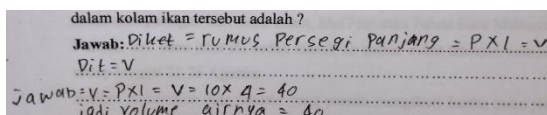 dalam kolam ikan tersebut adalah ?
Jawab: Diket = rumus Persegi Panjang = P x l = V
Dit = V
Jawab = V = P x l = V = 10 x 4 = 40
jadi volume airnya = 40